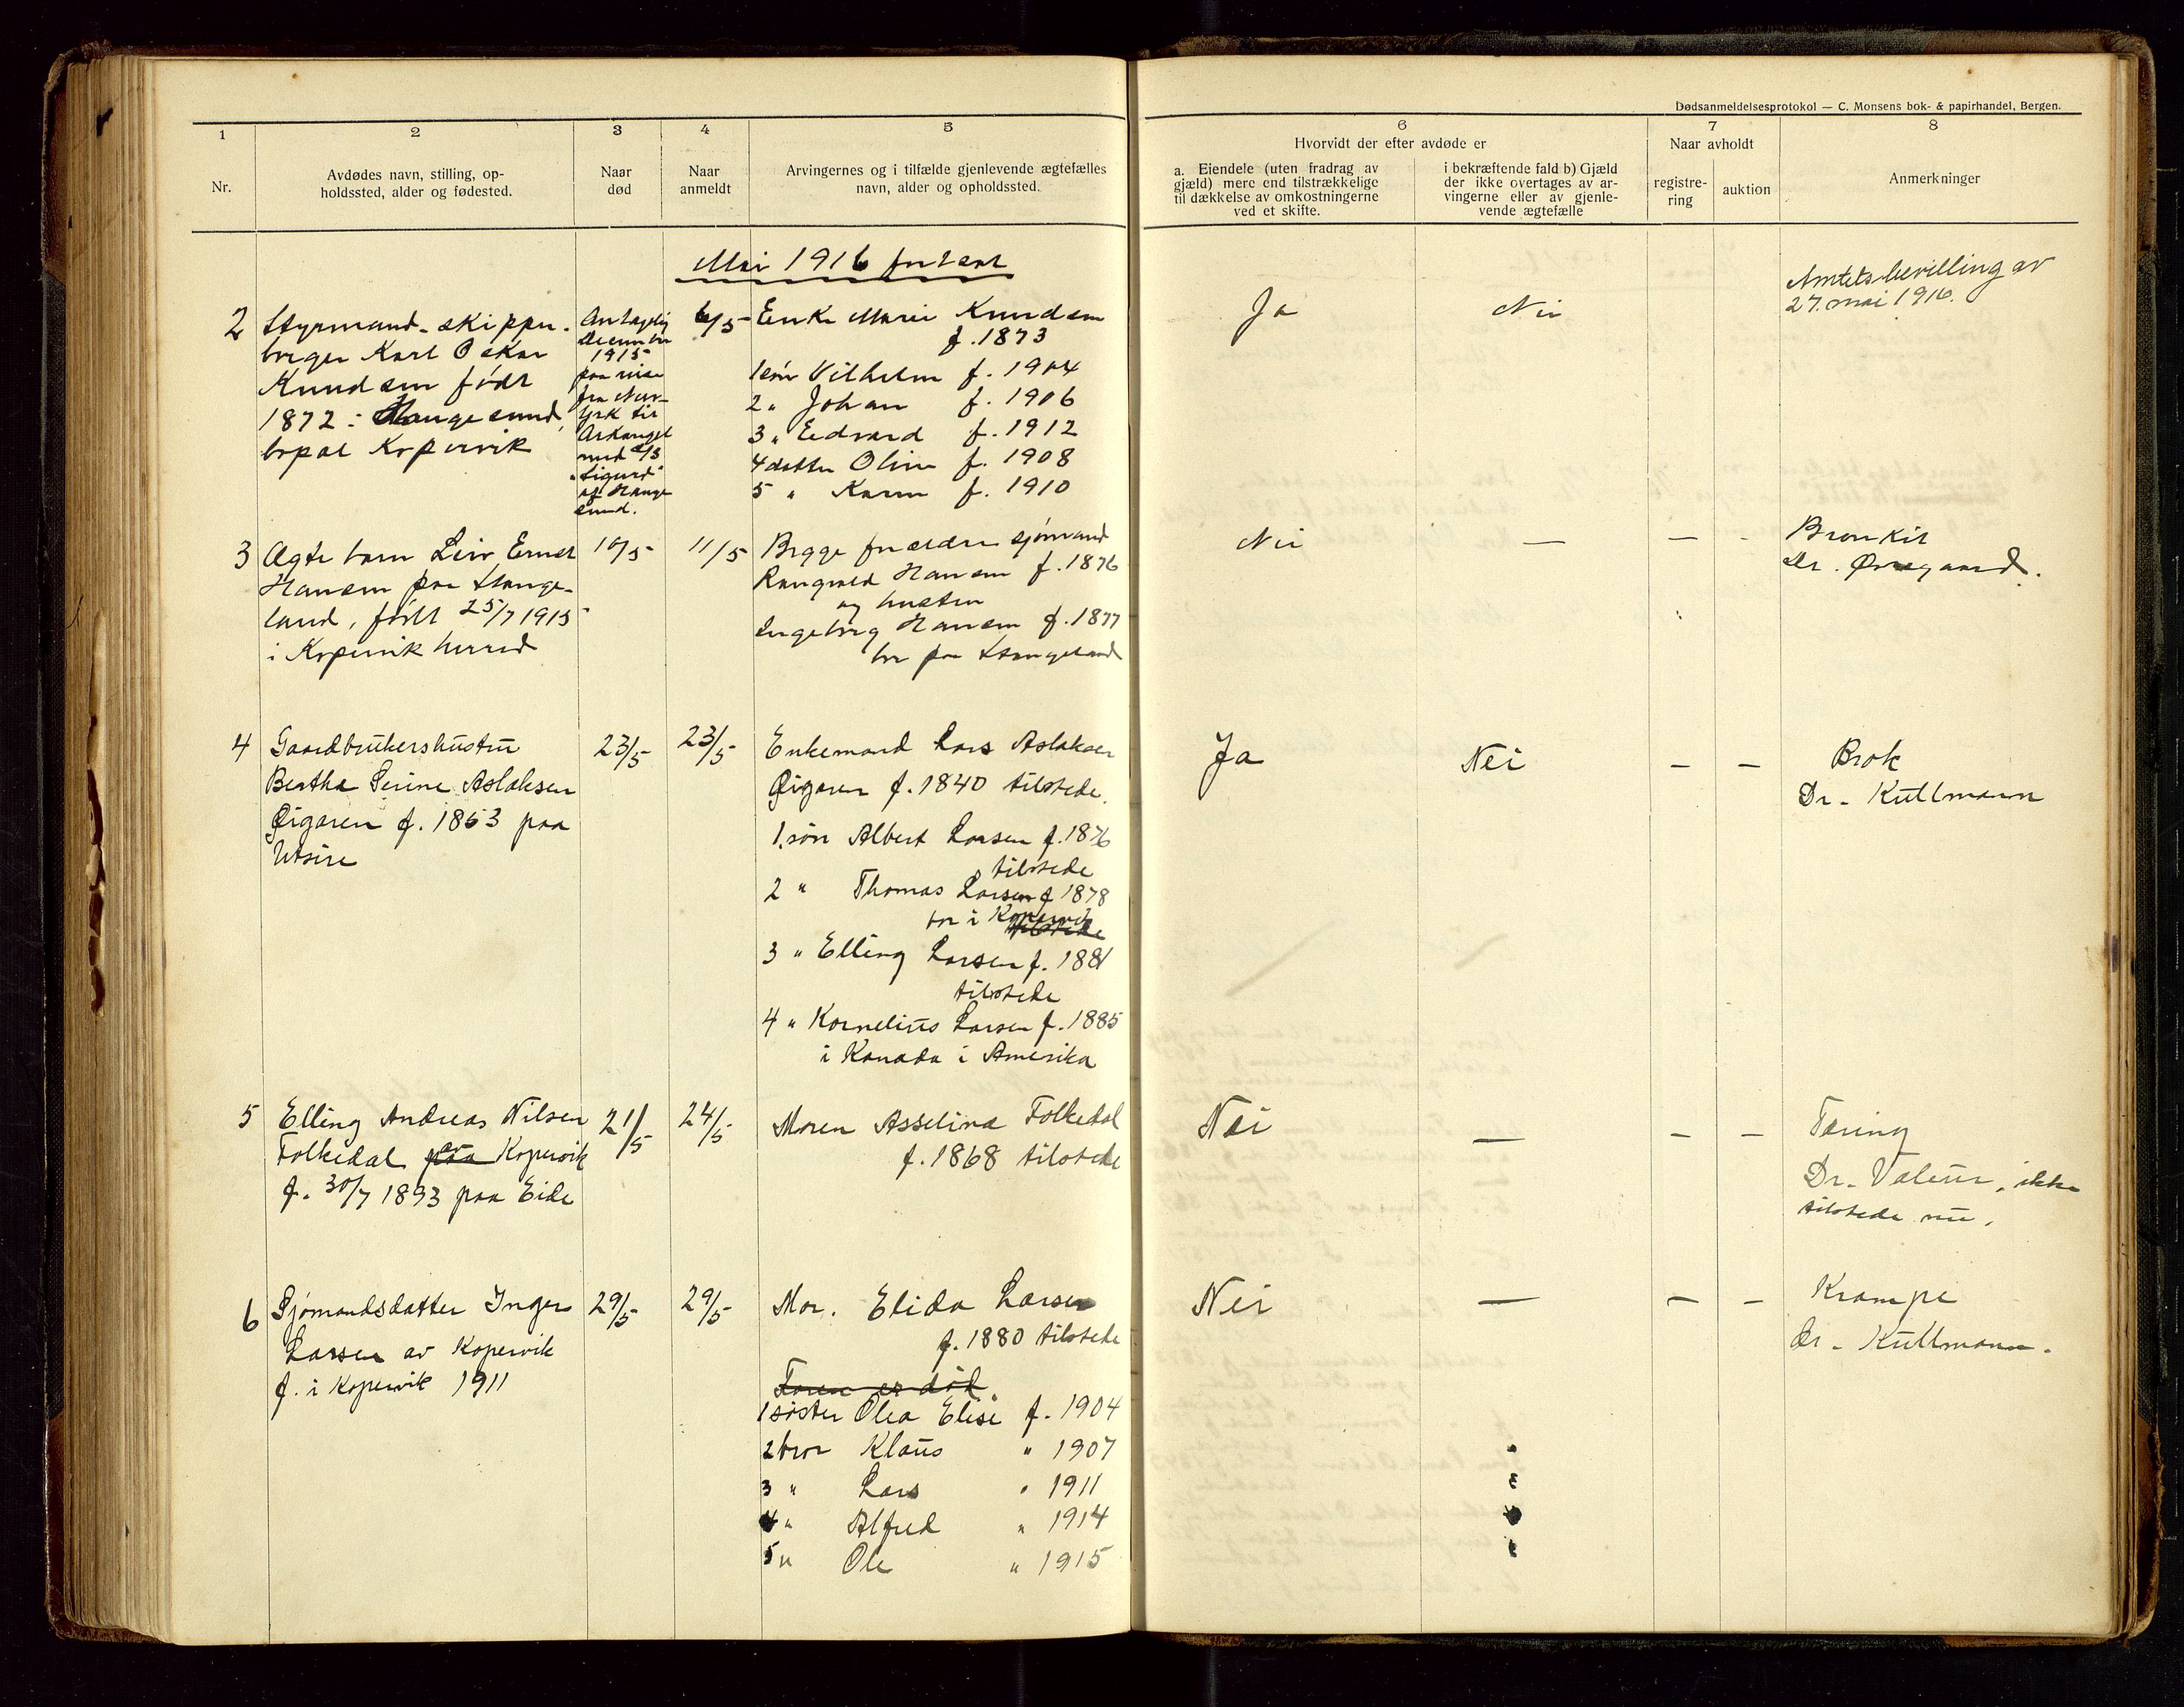 Dødsanmeldelsesprotokol — C. Monsens bok- & papirhandel, Bergen.
1
Nr.
2
Avdødes navn, stilling, op-
holdssted, alder og fødested.
3
Naar
død
4
Naar
anmeldt
5
Arvingernes og i tilfælde gjenlevende ægtefælles
navn, alder og opholdssted.
6
Hvorvidt der efter avdøde er
a. Eiendele (uten fradrag av
gjæld) mere end tilstrækkelige
til dækkelse av omkostningerne
ved et skifte.
i bekræftende fald b) Gjæld
der ikke overtages av ar-
vingerne eller av gjenle-
vende ægtefælle
7
Naar avholdt
registre-
ring
auktion
8
Anmerkninger
Mai 1916 fortsat
2
Styrmand-skipper-
borger Karl Oskar
Knudsen født
1872 i Haugesund,
bopæl Kopervik
Antagelig
December
1915
paa reise
fra New-
York til
Arkangel
med S/S
"Sigurd"
af Hauge
sund.
6/5
Enke Marie Knudsen
f. 1873
1 søn Vilhelm f. 1904
2 " Johan f. 1906
3 " Edvard f. 1912
4 datter Oline f. 1908
5 " Karen f. 1910
Ja
Nei
Amtets bevilling av
27. mai 1916.
3
Ægte barn Leiv Ernst
Hansen paa Stange-
land, født 25/7 1915
i Kopervik herred
10/5
11/5
Begge forældre sjømand
Rangvald Hansen f. 1876
og hustru
Ingeborg Hansen f. 1877
bor paa Stangeland
Nei
—
—
-
Bronkit
Dr. Øvregaard.
4
Gaardbrukershustru
Bertha Serine Aslaksen
Øigaren f. 1853 paa
Utsire
23/5
23/5
Enkemand Lars Aslaksen
Øigaren f. 1840 tilstede.
1. søn Albert Larsen f. 1876
tilstede
2 " Thomas Larsen f 1878
bor i Kopervik
tilstede
3 " Elling Larsen f. 1881
tilstede
4 " Kornelius Larsen f. 1885
i Kanada i Amerika
Ja
Nei
—
—
Brok
Dr. Kullmann
5
Elling Andreas Nilsen
Folkedal paa av Kopervik
f. 30/7 1893 paa Eide
21/5
24/5
Moren Asselina Folkedal
f. 1868 tilstede
Nei
—
—
—
Tæring
Dr. Valeur, ikke
tilstede nu.
6
Sjømandsdatter Inger
Larsen av Kopervik
f. i Kopervik 1911
29/5
29/5
Mor. Elida Larsen
f. 1880 tilstede
Faren er død.
1 søster Olea Elise f. 1904
2 bror Klaus " 1907
3 " Lars " 1911
4 " Alfred " 1914
5 " Ole " 1915
Nei
—
—
—
Krampe
Dr. Kullmann.